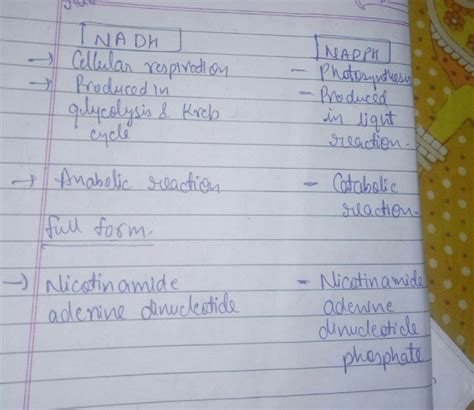 NADH
NADPH
→ Cellular respiration
- Photosynthesis
→ Produced in
glycolysis & Kreb
cycle
- Produced
in light
reaction.
→ Anabolic reaction
- Catabolic
reaction.
full form.
→ Nicotinamide
adenine dinucleotide
- Nicotinamide
adenine
dinucleotide
phosphate